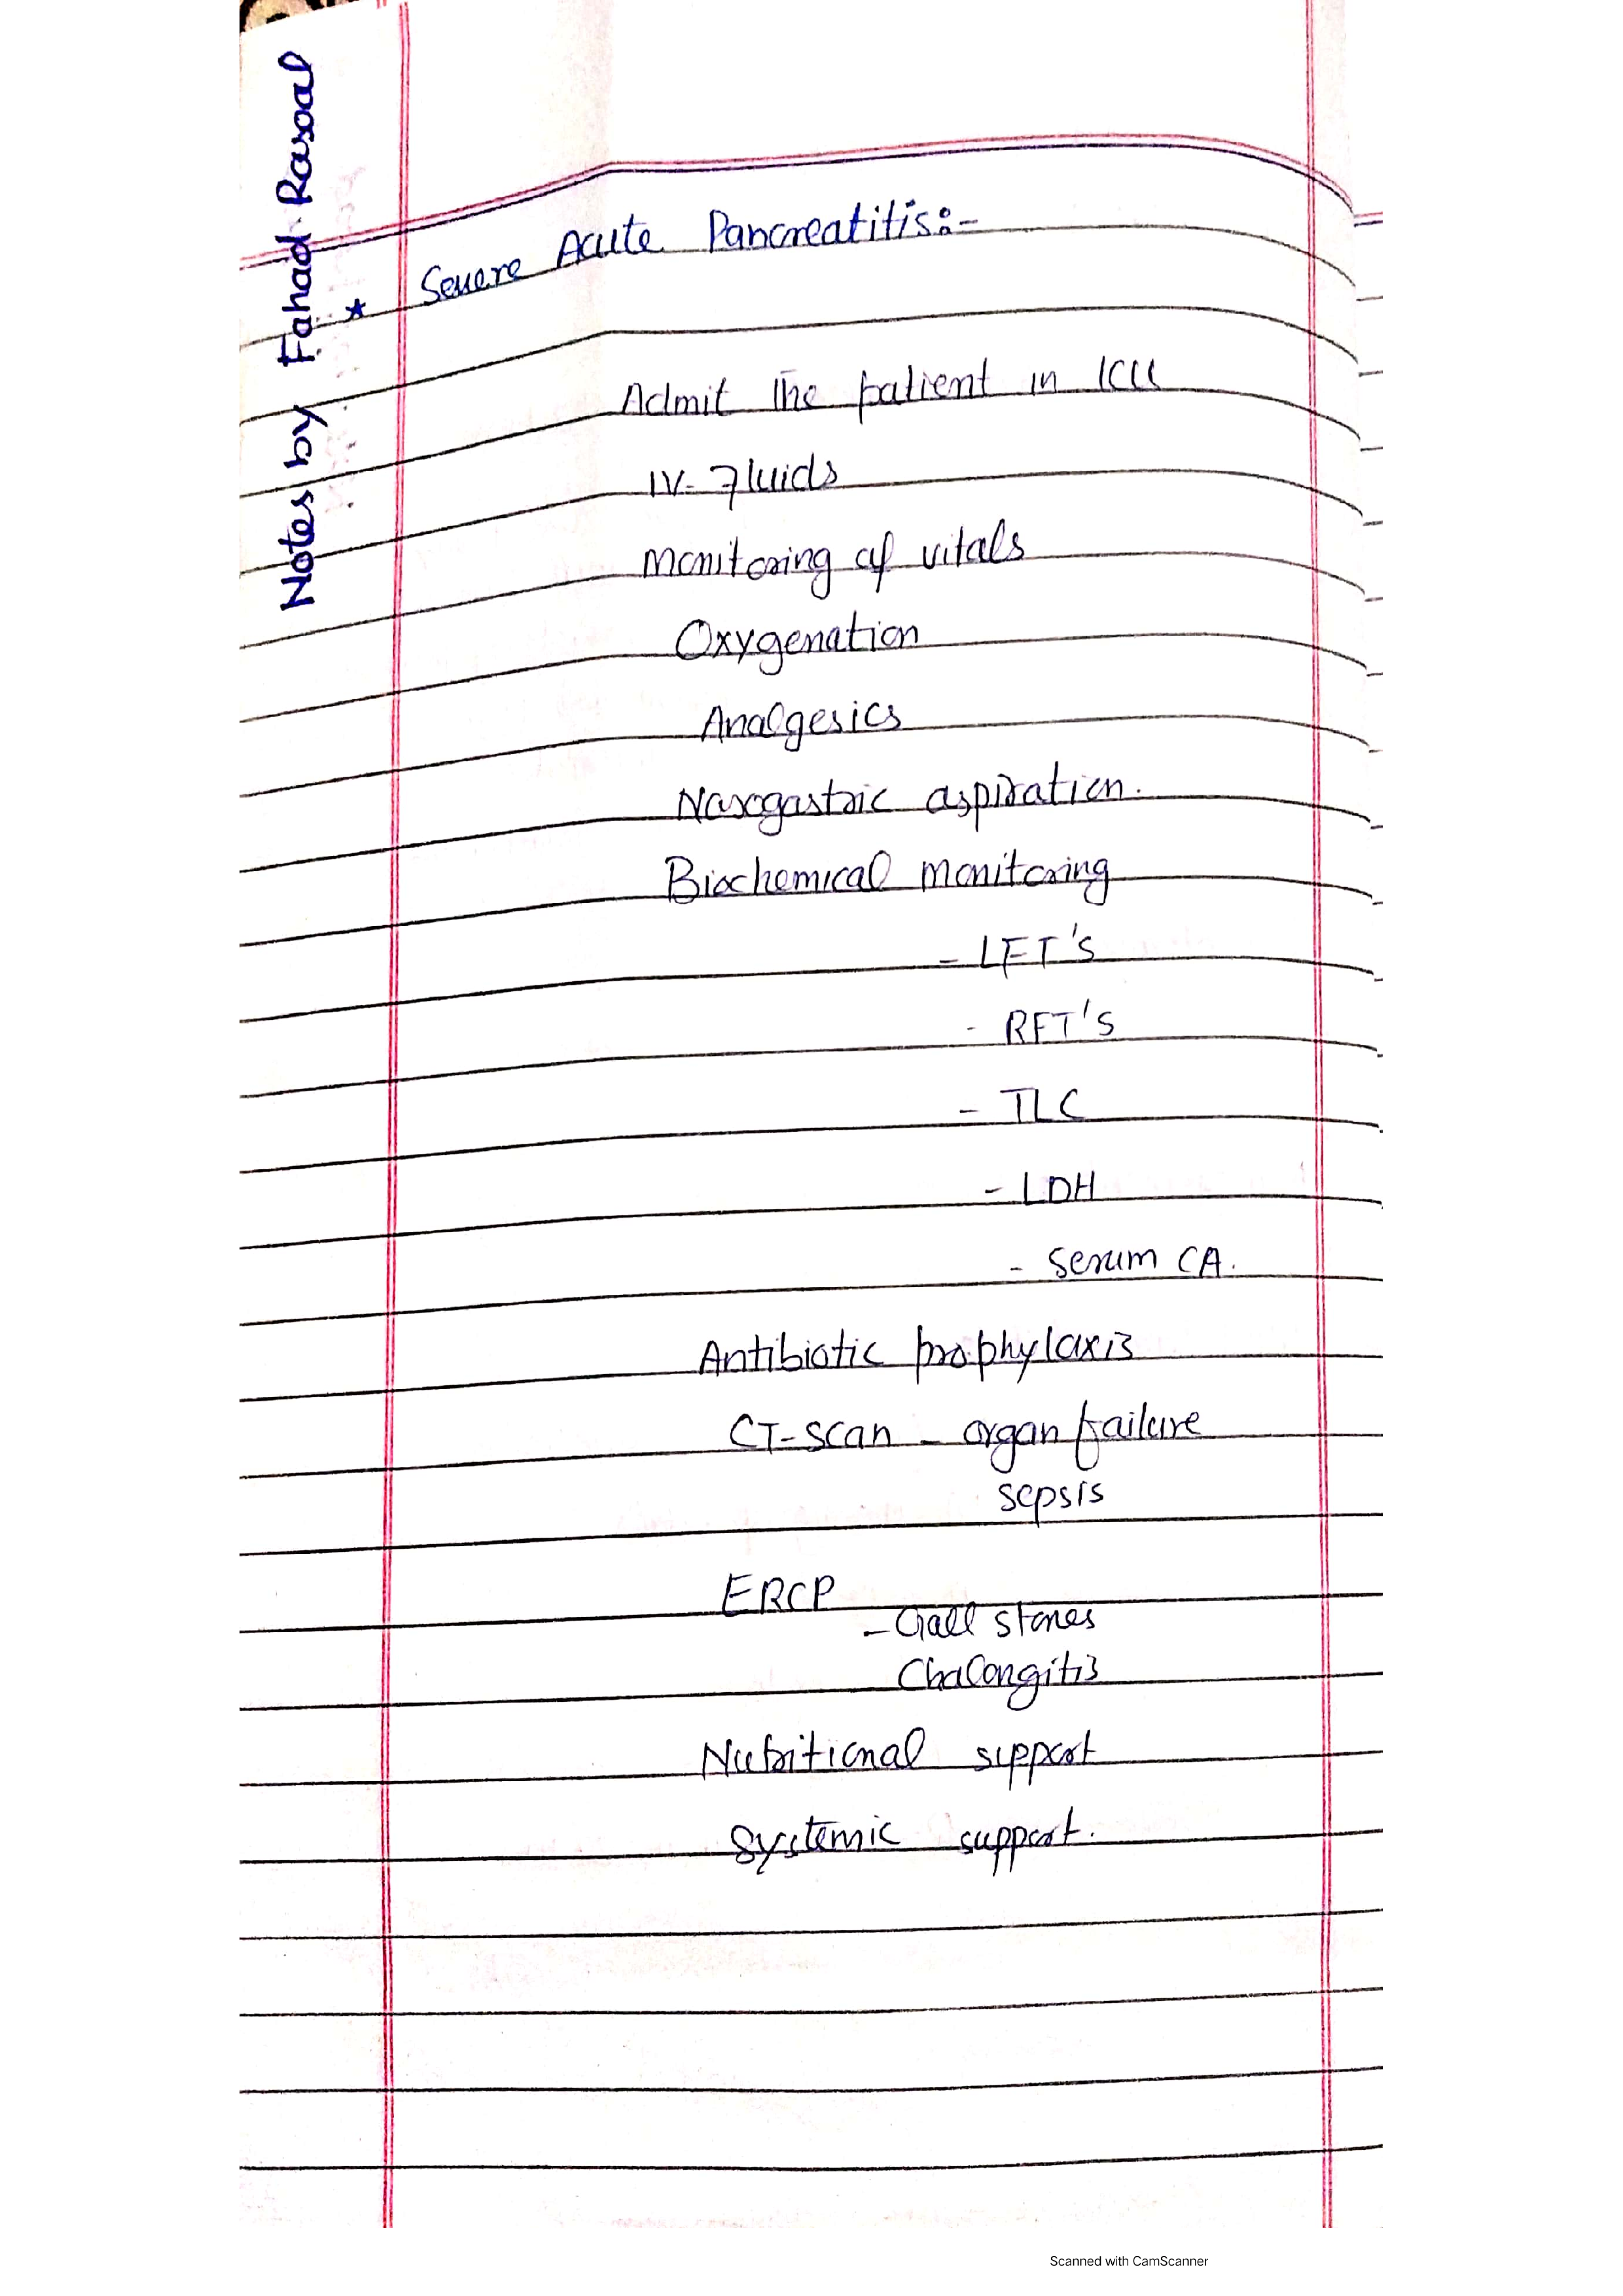 Notes by Fahad Rasool
* Severe Acute Pancreatitis:-
Admit the patient in ICU
IV- Fluids
Monitoring of vitals
Oxygenation
Analgesics
Nasogastric aspiration.
Biochemical monitoring
- LFT's
- RFT's
- TLC
- LDH
- Serum CA.
Antibiotic prophylaxis
CT-scan - organ failure
sepsis
ERCP
- Gall stones
Chalongitis
Nutritional support
Systemic support.
Scanned with CamScanner